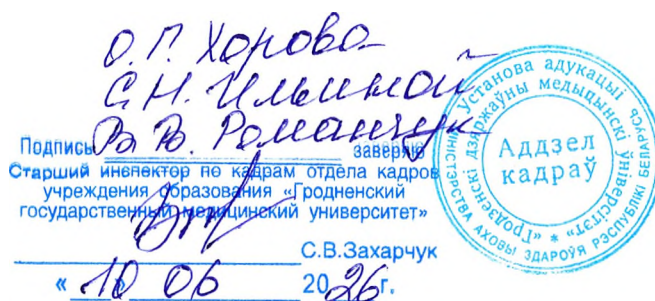 О.Г. Хорова
С.Н. Ильиной
В.В. Романчук
Подпись заверяю
Старший инспектор по кадрам отдела кадров
учреждения образования «Гродненский
государственный медицинский университет»
С.В.Захарчук
« 10 06 2026г.
МІНІСТЭРСТВА АХОВЫ ЗДАРОЎЯ РЭСПУБЛІКІ БЕЛАРУСЬ
Установа адукацыі
«Гродзенскі дзяржаўны медыцынскі ўніверсітэт» *
Аддзел
кадраў